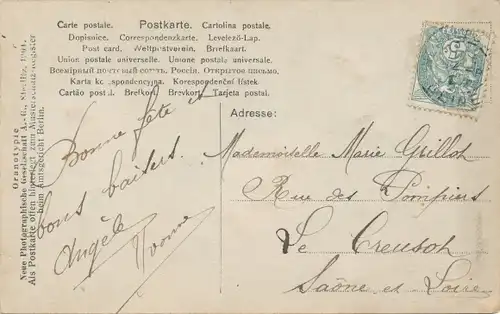 Carte postale. Postkarte. Cartolina postale.
Dopisnice. Correspondenzkarte. Levelező-Lap.
Post card. Weltpostverein. Briefkaart.
Union postale universelle. Unione postale universale.
Всемірный почтовый союзъ. Россія. Открытое письмо.
Karta korespondencyjna. Korespondenční lístek.
Cartão postal. Brefkort. Brevkort. Tarjeta postal.
Oranotypie
Neue Photographische Gesellschaft A.-G., Steglitz, 1904.
Als Postkarte offen hinterlegt zum Musterschutz-register
beim Amtsgericht Berlin.
Bonne fête et
bons baisers.
Angèle
Yvonne
Adresse:
Mademoiselle Marie Grillot
Rue des Pompiers
Le Creusot
Saône et Loire